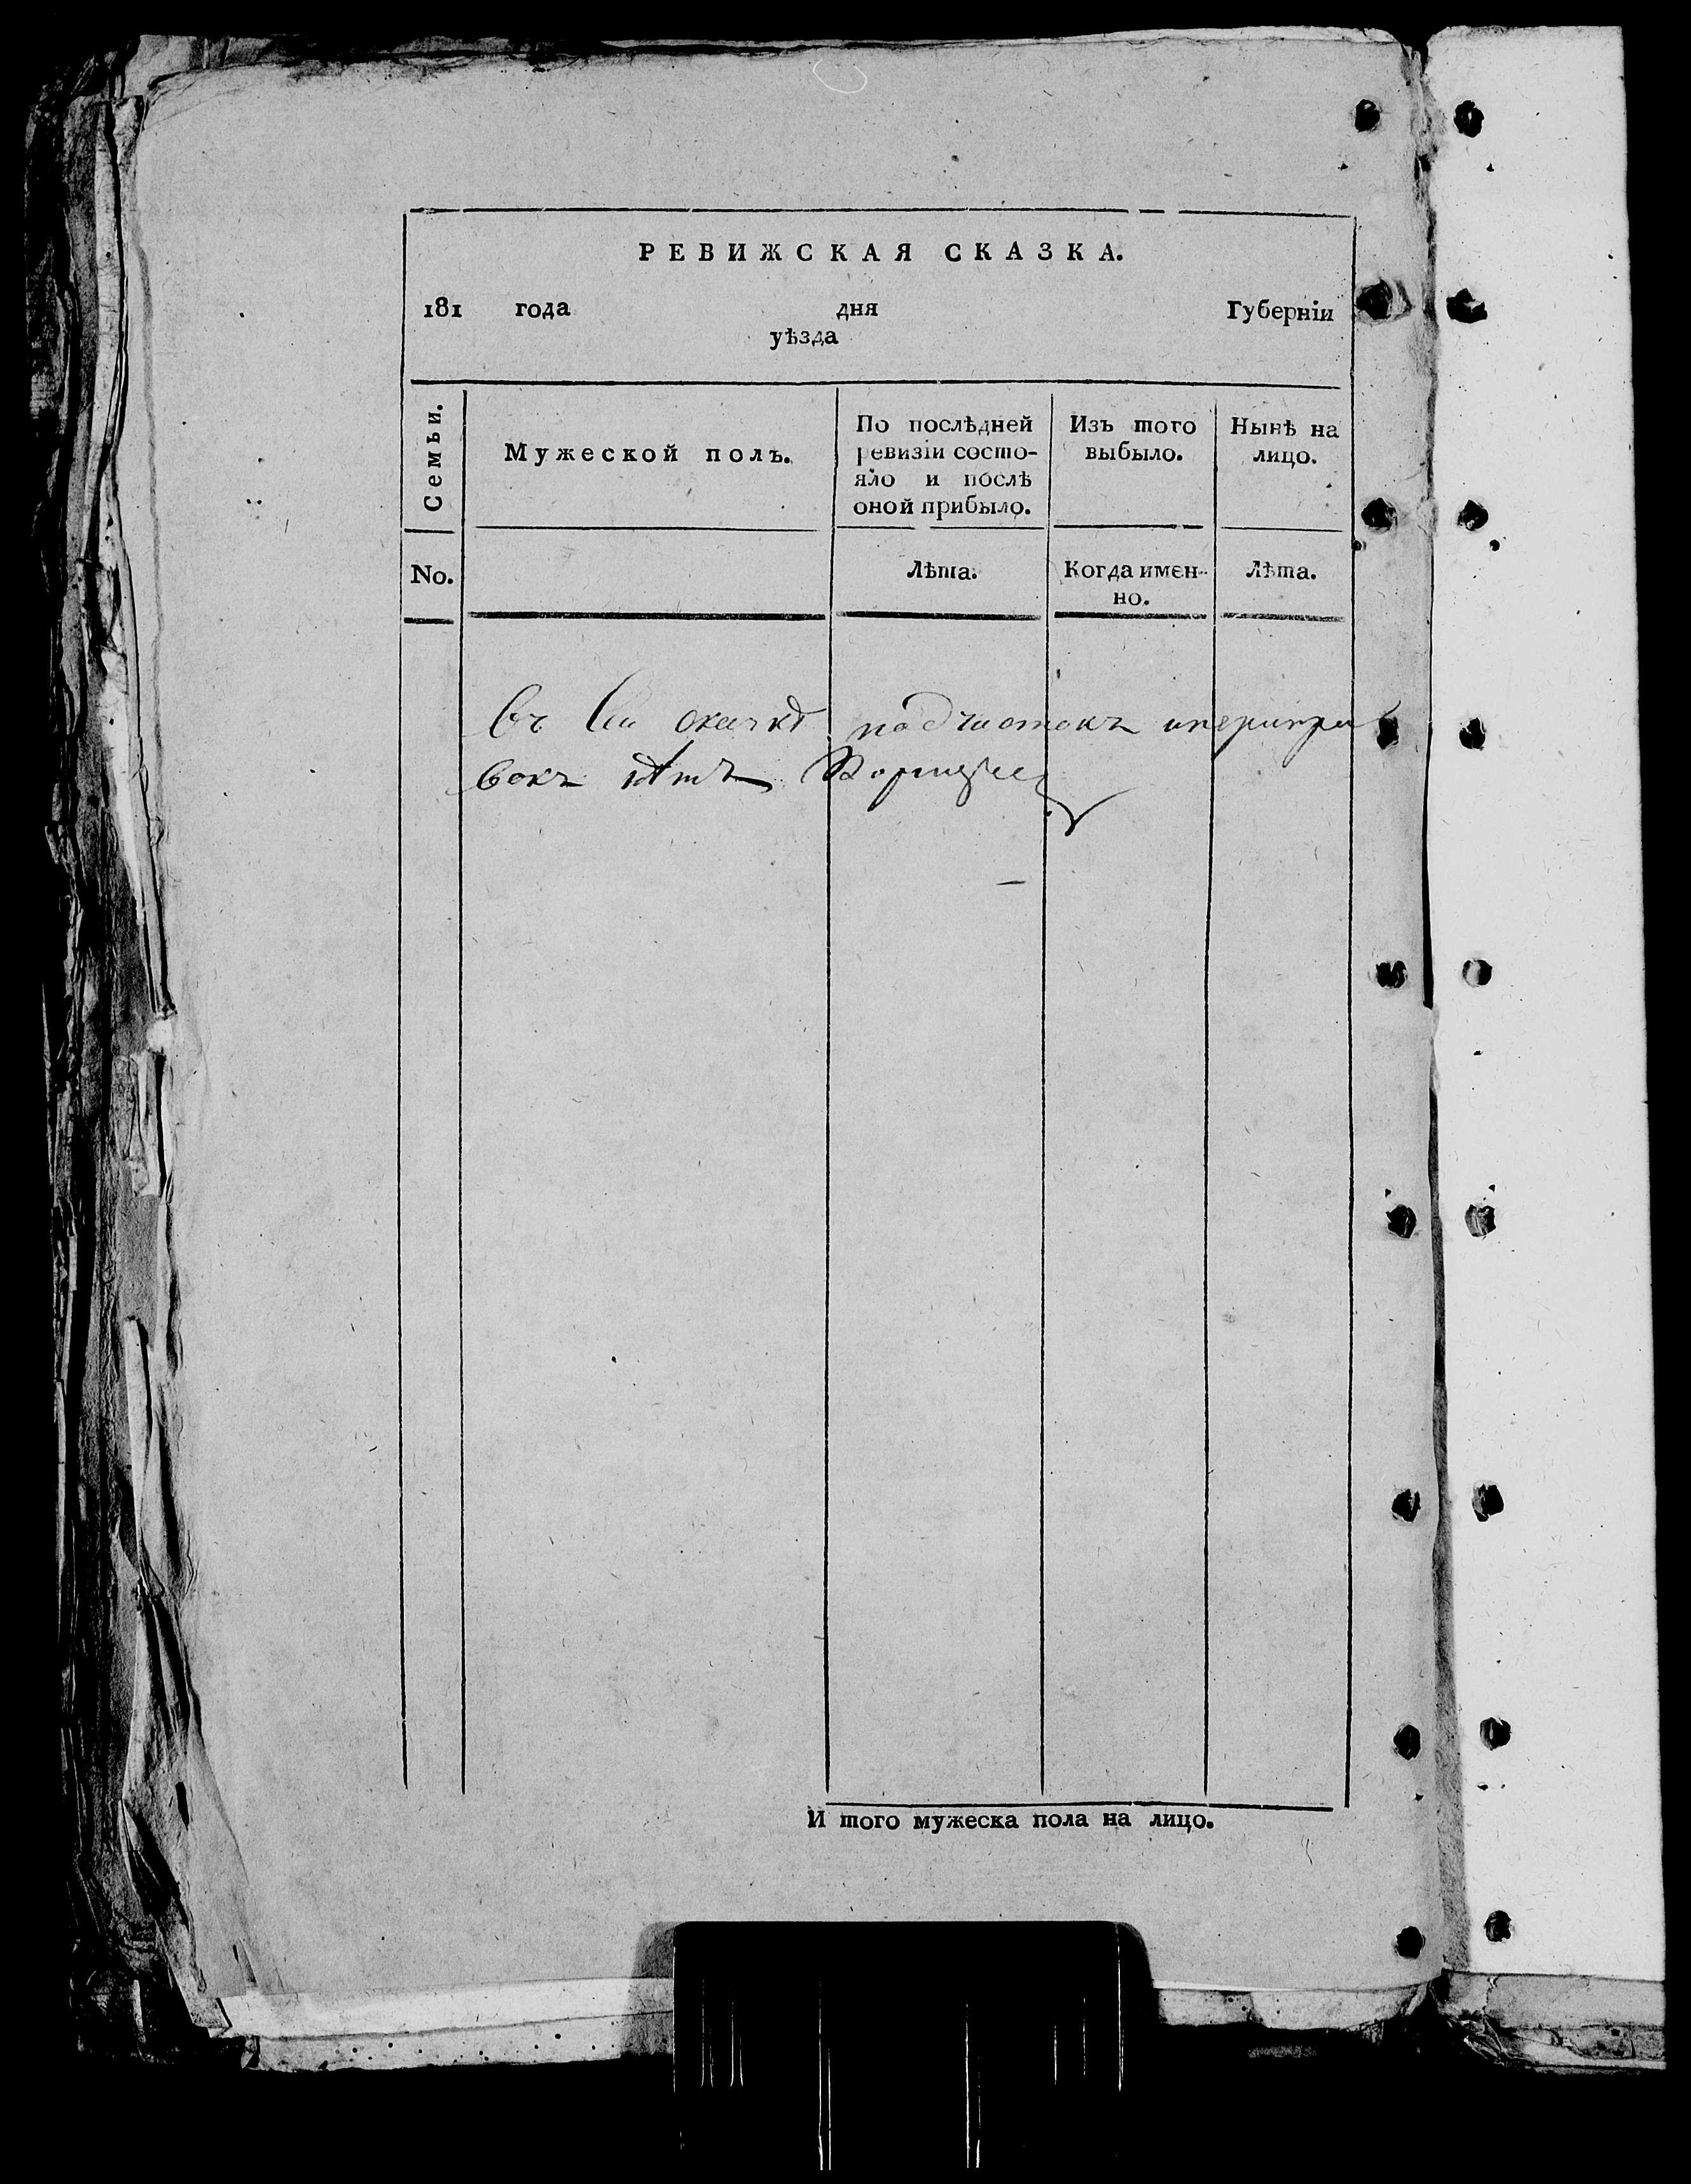 РЕВИЖСКАЯ СКАЗКА.
181 года дня Губерніи
уѣзда
Семьи.
Мужеской полъ.
По послѣдней
ревизіи состо-
яло и послѣ
оной прибыло.
Изъ того
выбыло.
Нынѣ на
лицо.
No.
Лѣта.
Когда имен-
но.
Лѣта.
Въ сей скаскѣ подчистокъ иперипра
вокъ нѣтъ
И того мужеска пола на лицо.